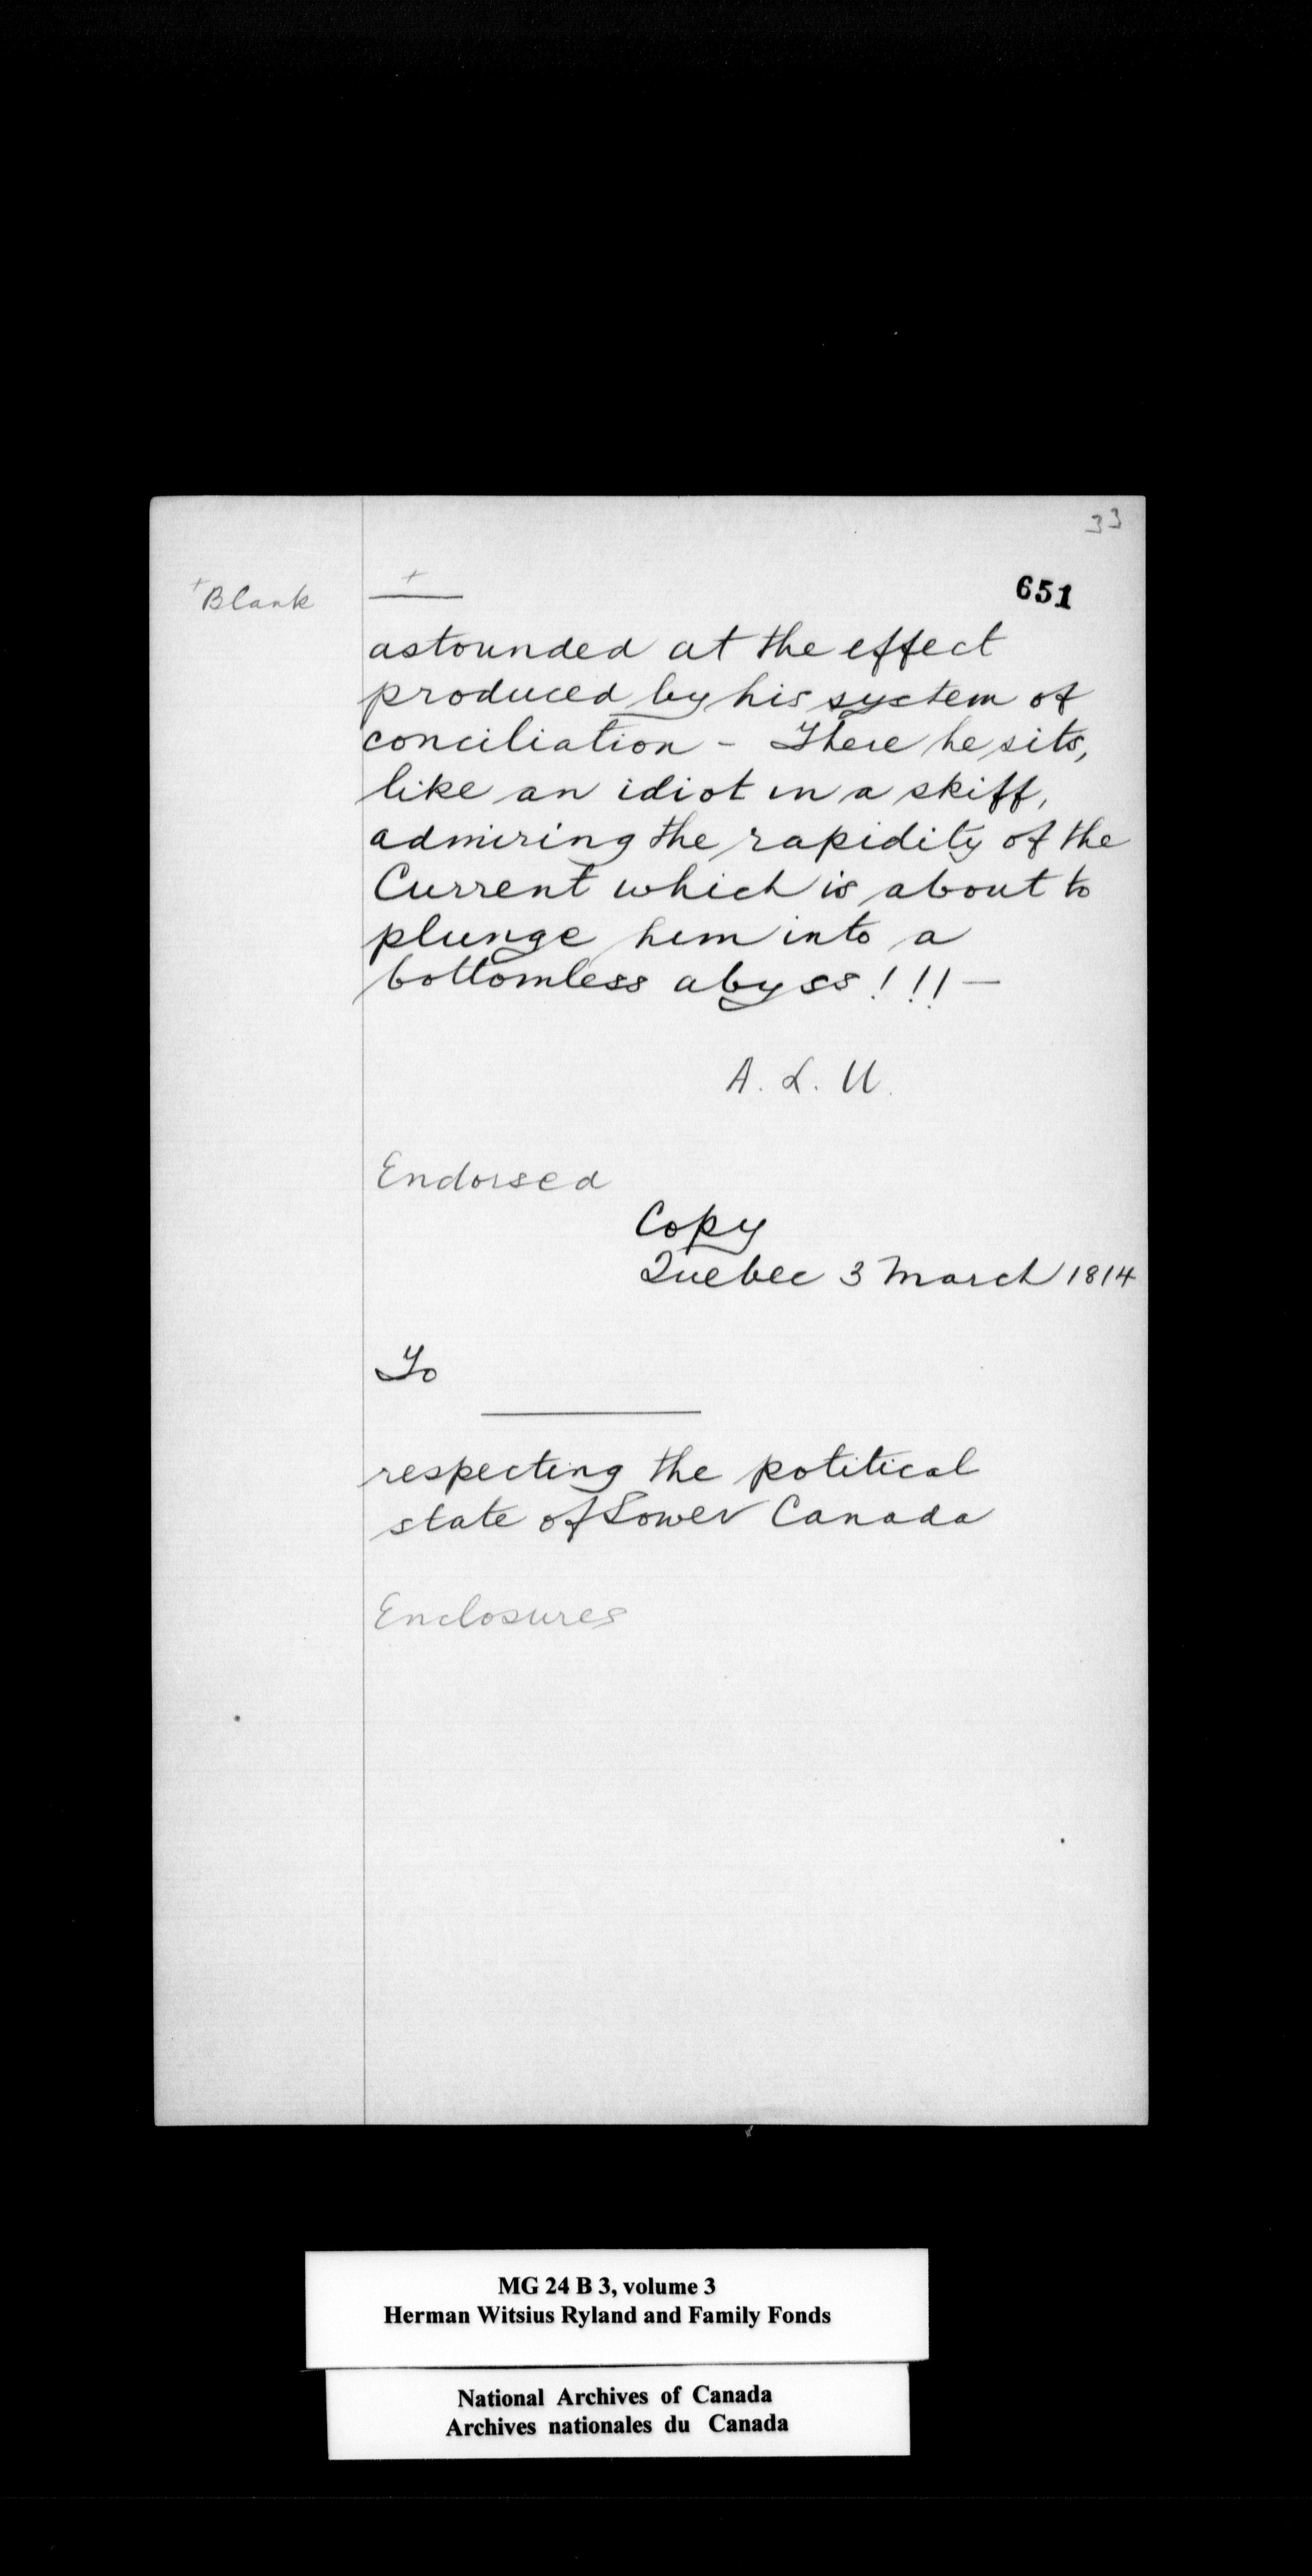 33
651
+Blank
+
astounded at the effect
produced by his system of
conciliation - There he sits,
like an idiot in a skiff,
admiring the rapidity of the
Current which is about to
plunge him into a
bottomless abyss!!! —
A. L. U.
Endorsed
Copy
Quebec 3 March 1814
To
respecting the potitical
state of Lower Canada
Enclosures
MG 24 B 3, volume 3
Herman Witsius Ryland and Family Fonds
National Archives of Canada
Archives nationales du Canada